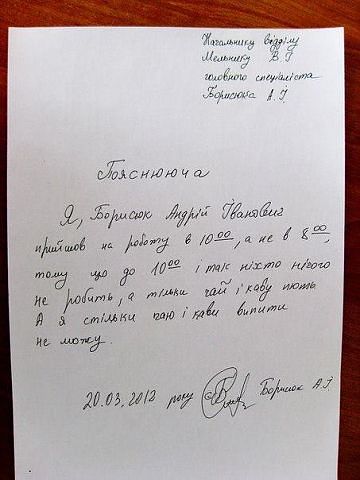 Начальнику відділу
Мельнику В.Г
головного спеціаліста
Борисюка А.Г.
Пояснююча
Я, Борисюк Андрій Іванович
прийшов на роботу в 10 00, а не в 8 00,
тому що до 10 00 і так ніхто нічого
не робить, а тільки чай і каву пють
А я стільки чаю і кави випити
не можу.
20.03.2012 року Борисюк А.Г.